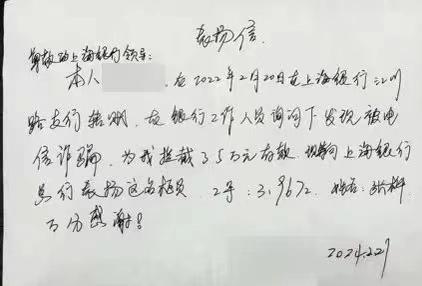 表扬信
尊敬的上海银行领导:
本人 在2022年2月20日在上海银行
路支行转账,在银行工作人员询问下发现被电
信诈骗,为我拦截了5万元存款,现向上海银行
总行表扬这名柜员,工号:3.9672.姓名:
万分感谢!
2024.2.27